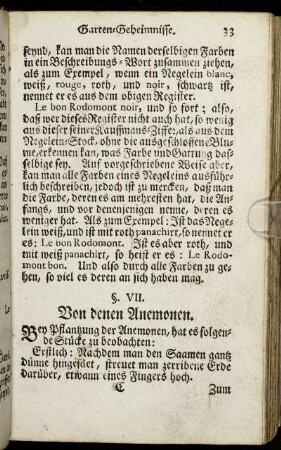 Garten-Geheimnisse. 33
seynd, kan man die Namen derselbigen Farben
in ein Beschreibungs-Wort zusammen ziehen,
als zum Exempel, wenn ein Negelein blanc,
weiß, rouge, roth, und noir, schwartz ist,
nennet er es aus dem obigen Register.
Le bon Rodomont noir, und so fort; also,
daß wer dieses Register nicht auch hat, so wenig
aus dieser seiner Kauffmans-Ziffer, als aus dem
Negelein-Stock, ohne die ausgeschlossene Blu-
me, erkennen kan, was Farbe und Gattung das-
selbige sey. Auf vorgeschriebene Weise aber,
kan man alle Farben eines Negeleins ausführ-
lich beschreiben, jedoch ist zu mercken, daß man
die Farbe, deren es am mehresten hat, die An-
fangs, und vor denenjenigen nenne, deren es
weniger hat. Als zum Exempel: Ist das Nege-
lein weiß, und ist mit roth panachirt, so nennet er
es: Le bon Rodomont. Ist es aber roth, und
mit weiß panachirt, so heist er es: Le Rodo-
mont bon. Und also durch alle Farben zu ge-
hen, so viel es deren an sich haben mag.
§. VII.
Von denen Anemonen.
Bey Pflantzung der Anemonen, hat es folgen-
de Stücke zu beobachten:
Erstlich: Nachdem man den Saamen gantz
dünne hingesäet, streuet man zerribene Erde
darüber, etwann eines Fingers hoch.
C Zum